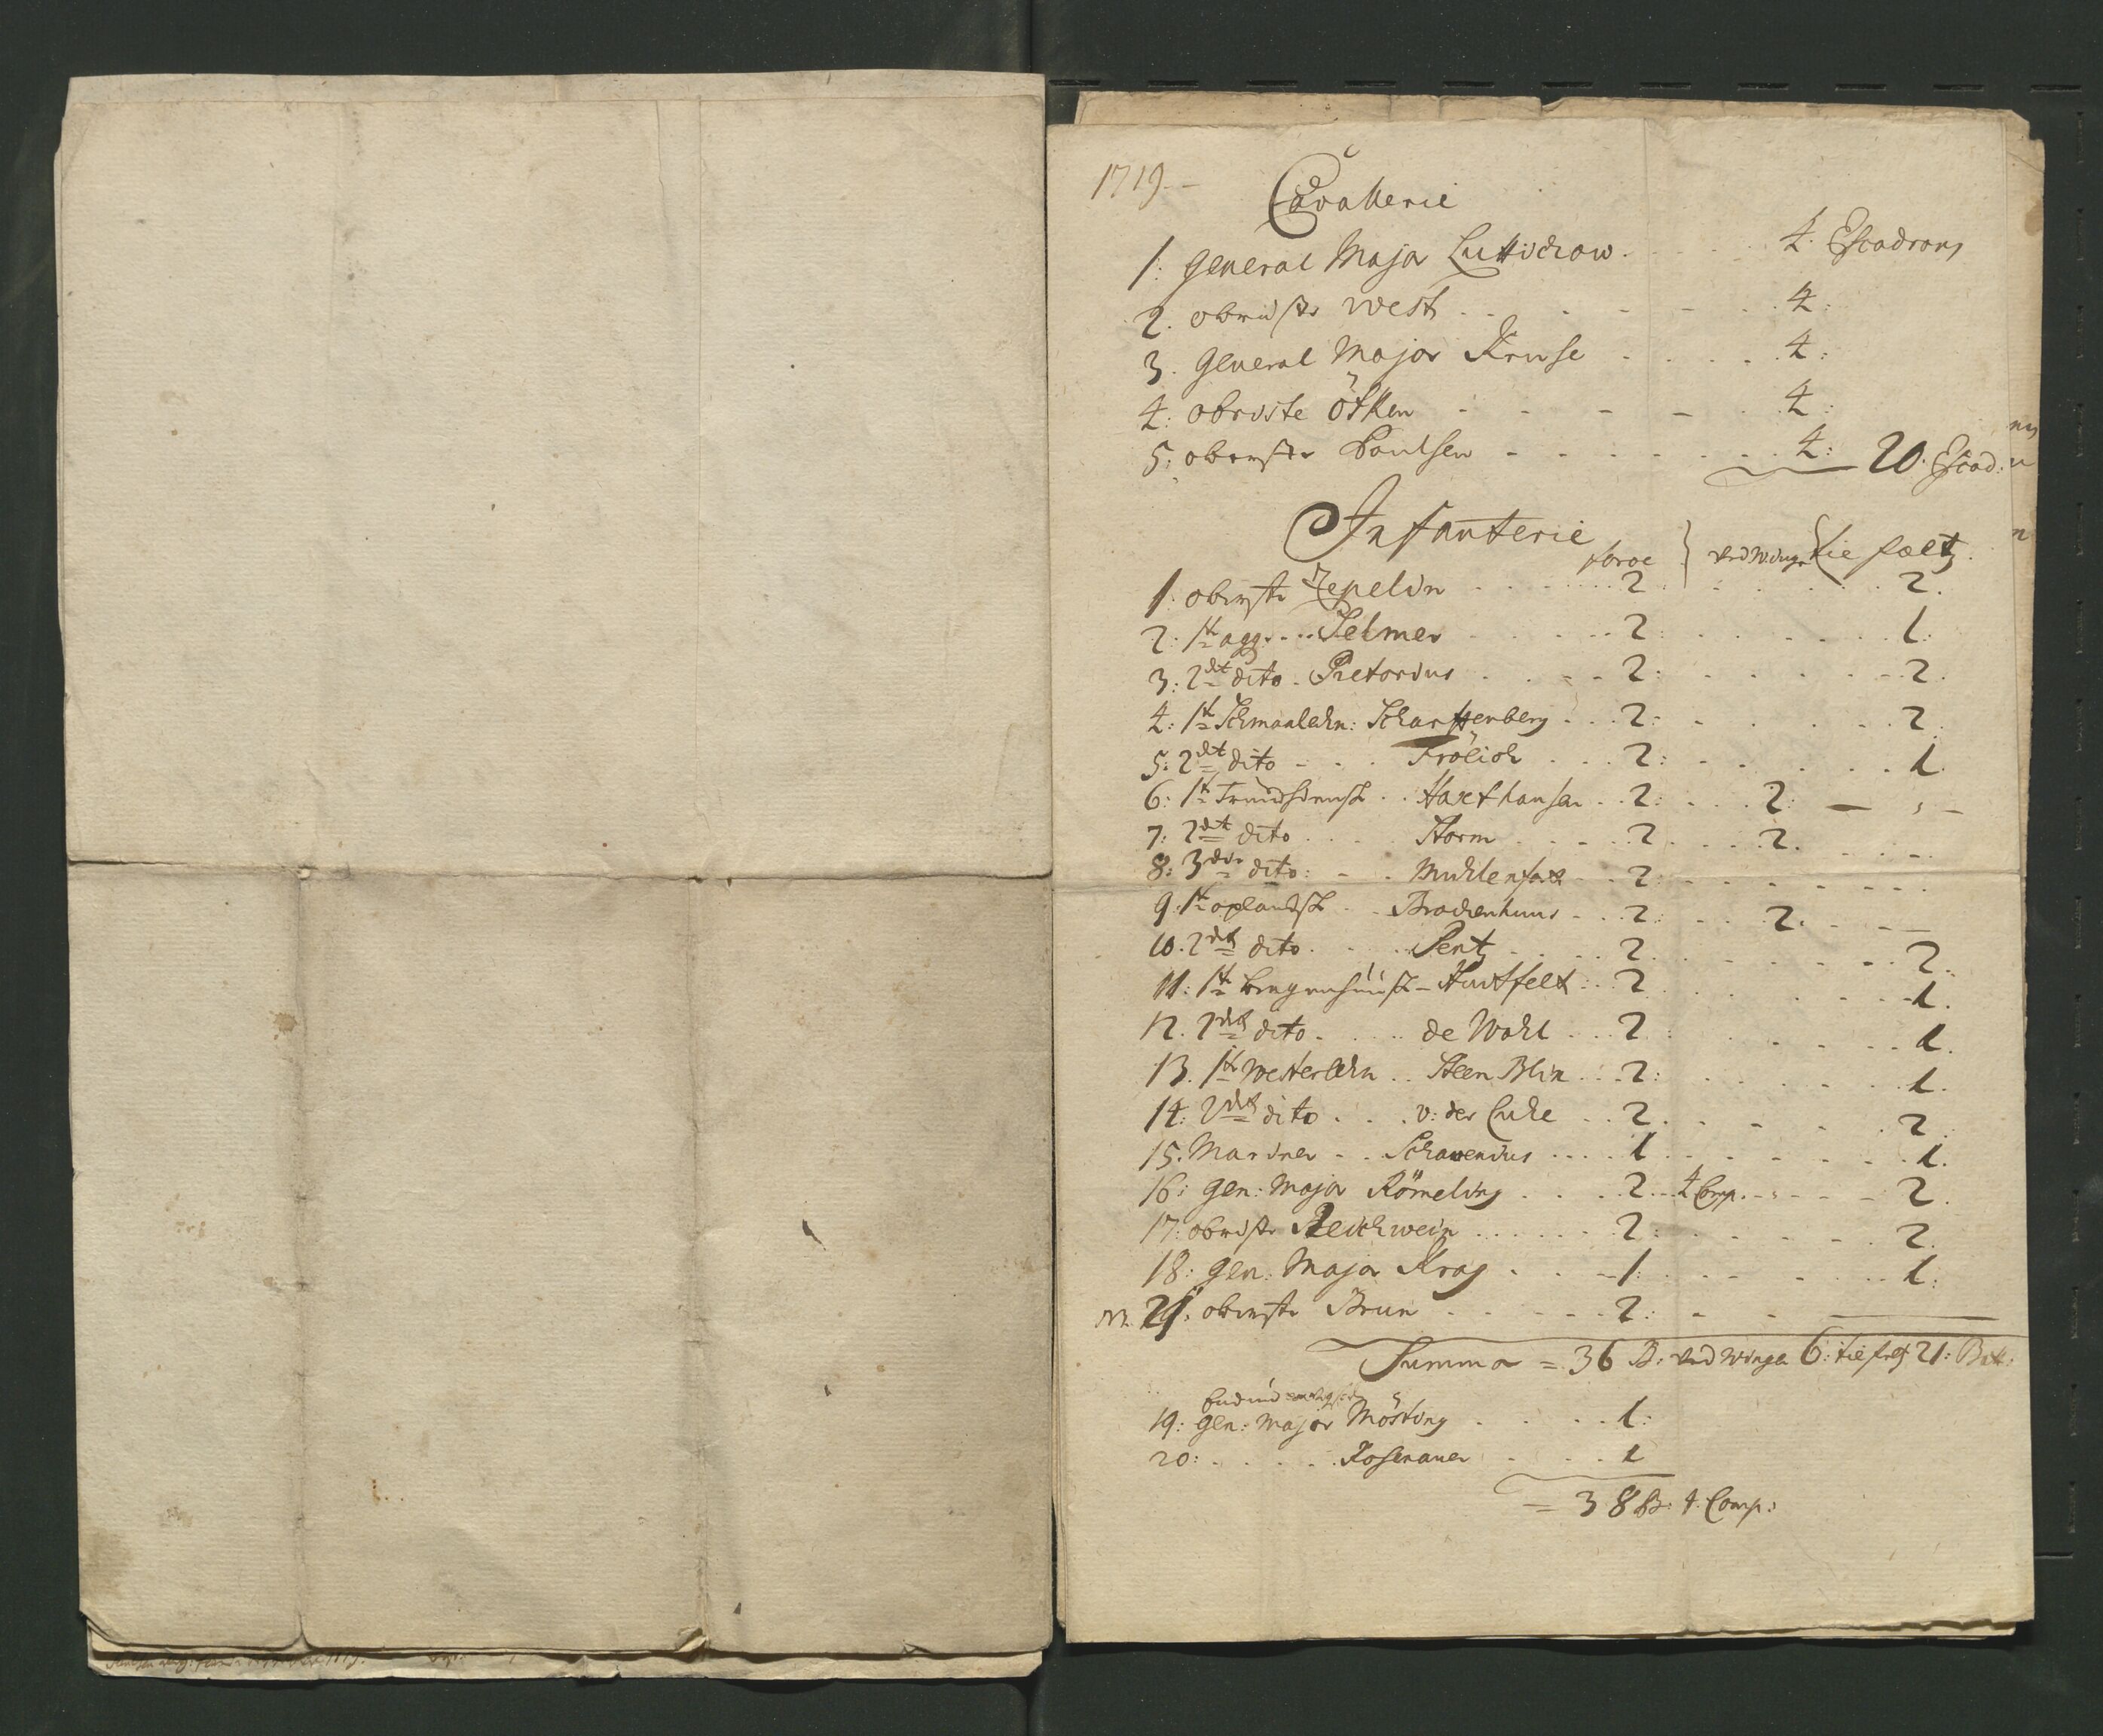 1719 -
Cavallerie
1: General Major Luttichow . . . 4. Escadrons
2. obrister West . . - - - . 4:
3. General Major Kruse . . . . 4:
4: obriste Ötken - - - - . 4:
5: obrister Poulsen - - - - . 4: 20. Escad:
Infanterie
force vid Winger tie fæltz.
1. obrister Zepelin . . . 2 . . . 2.
2. 1te agg. . . Selmer . . . 2: . . . 1:
3: 2det dito . Pretorius . . - - 2: . . . 2.
4: 1te Schmaalehn: Scharffenberg . . . 2: . . . 2.
5: 2det dito - . . Frölich . . . 2: . . . 1.
6: 1te Trundhiemsk . . Haxthausen . . 2: . . . 2: —
7: 2det dito . . . Storm . . . 2 . . . 2.
8: 3die dito: - . Muhlenfort . . 2: . . .
9. 1te oplandsk . . Brockenhuus - . . 2: . . 2.
10. 2det dito . . . Pentz . . . 2 . . . 2.
11: 1te bergenhuusk - Huitfelt . . 2 . . . 1.
12. 2det dito . . . de Wohl . . . 2 . . . 1.
13. 1te Westerlehn . . Steen Blix . . . 2: . . . 1.
14: 2det dito . . . v: der Luhe . . 2. . . . 2.
15. Mariner - . . . . . 1 . . . 1.
16: gen: Major Römeling . . . 2 . . 4 Comp. . . . 2.
17: obrister Reichwein . . . . 2: . . . 2.
18: gen: Major Krag . . . 1: . . . 1:
21. obrister Brun . . . 2: - - —
Summa = 36 B: vid Winger 6: tie feltz 21: Bat:
19: gen: major Mösting . . . 1:
20: . . . . Rosenauer . . . 1
= 38 B: 4. Comp: